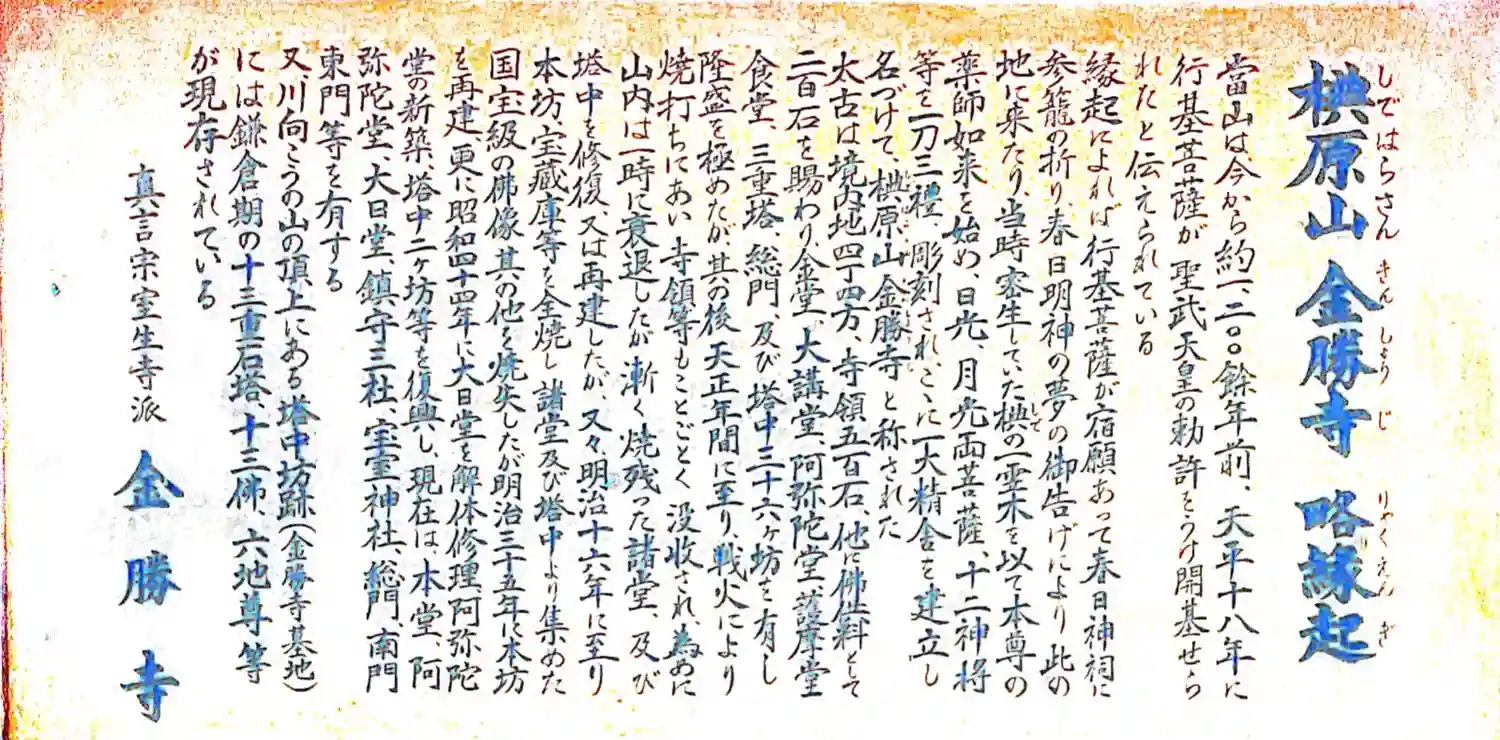 椣原山 金勝寺 略縁起
しではらさん きんしょうじ りゃくえんぎ
當山は今から約一、二〇〇餘年前、天平十八年に
行基菩薩が聖武天皇の勅許をうけ開基せら
れたと伝えられている
縁起によれば行基菩薩が宿願あって春日神祠に
参籠の折り、春日明神の夢の御告げにより此の
地に来たり、当時密生していた椣の一霊木を以て本尊の
しで
薬師如来を始め、日光、月光両菩薩、十二神将
等を一刀三禮、彫刻され、こゝに一大精舎を建立し
名づけて、椣原山金勝寺と称された
太古は境内地四丁四方、寺領五百石、他に佛供料として
二百石を賜わり、金堂、大講堂、阿弥陀堂、護摩堂
食堂、三重塔、総門、及び塔中三十六ヶ坊を有し
隆盛を極めたが、其の後天正年間に至り、戦火により
焼打ちにあい寺領等もことごとく没收され、為めに
山内は一時に衰退したが漸く焼残った諸堂、及び
塔中を修復、又は再建したが、又々、明治十六年に至り
本坊、宝蔵庫等を全焼し諸堂及び塔中より集めた
国宝級の佛像其の他を焼失したが明治三十五年に本坊
を再建更に昭和四十四年に大日堂を解体修理、阿弥陀
堂の新築、塔中二ヶ坊等を復興し、現在は、本堂、阿
弥陀堂、大日堂、鎮守三社、宝室神社、総門、南門
東門等を有する
又、川向こうの山の頂上にある塔中坊跡(金勝寺墓地)
には鎌倉期の十三重石塔、十三佛、六地尊等
が現存されている
真言宗室生寺派 金勝寺